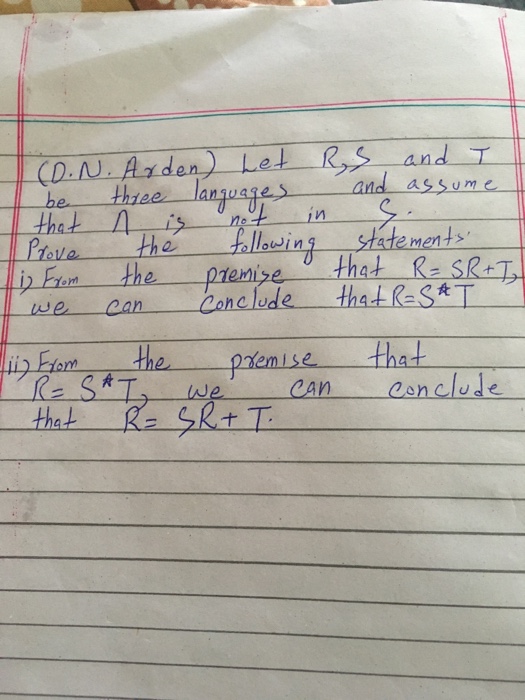 (D.N. Arden) Let R, S and T
be three languages and assume
that Λ is not in S.
Prove the following statements.
i) From the premise that R = SR + T,
we can conclude that R = S*T
ii) From the premise that
R = S*T, we can conclude
that R = SR + T.